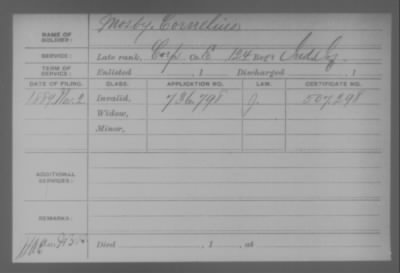 NAME OF SOLDIER: Mosby, Cornelius
SERVICE: Late rank, Corp Co. E, 124 Reg't Inds
TERM OF SERVICE: Enlisted , 1 Discharged , 1
DATE OF FILING. CLASS. APPLICATION NO. LAW. CERTIFICATE NO.
1889 Invalid, 736.798 J. 507.298
Widow,
Minor,
ADDITIONAL SERVICES:
REMARKS:
Died , 1 , at